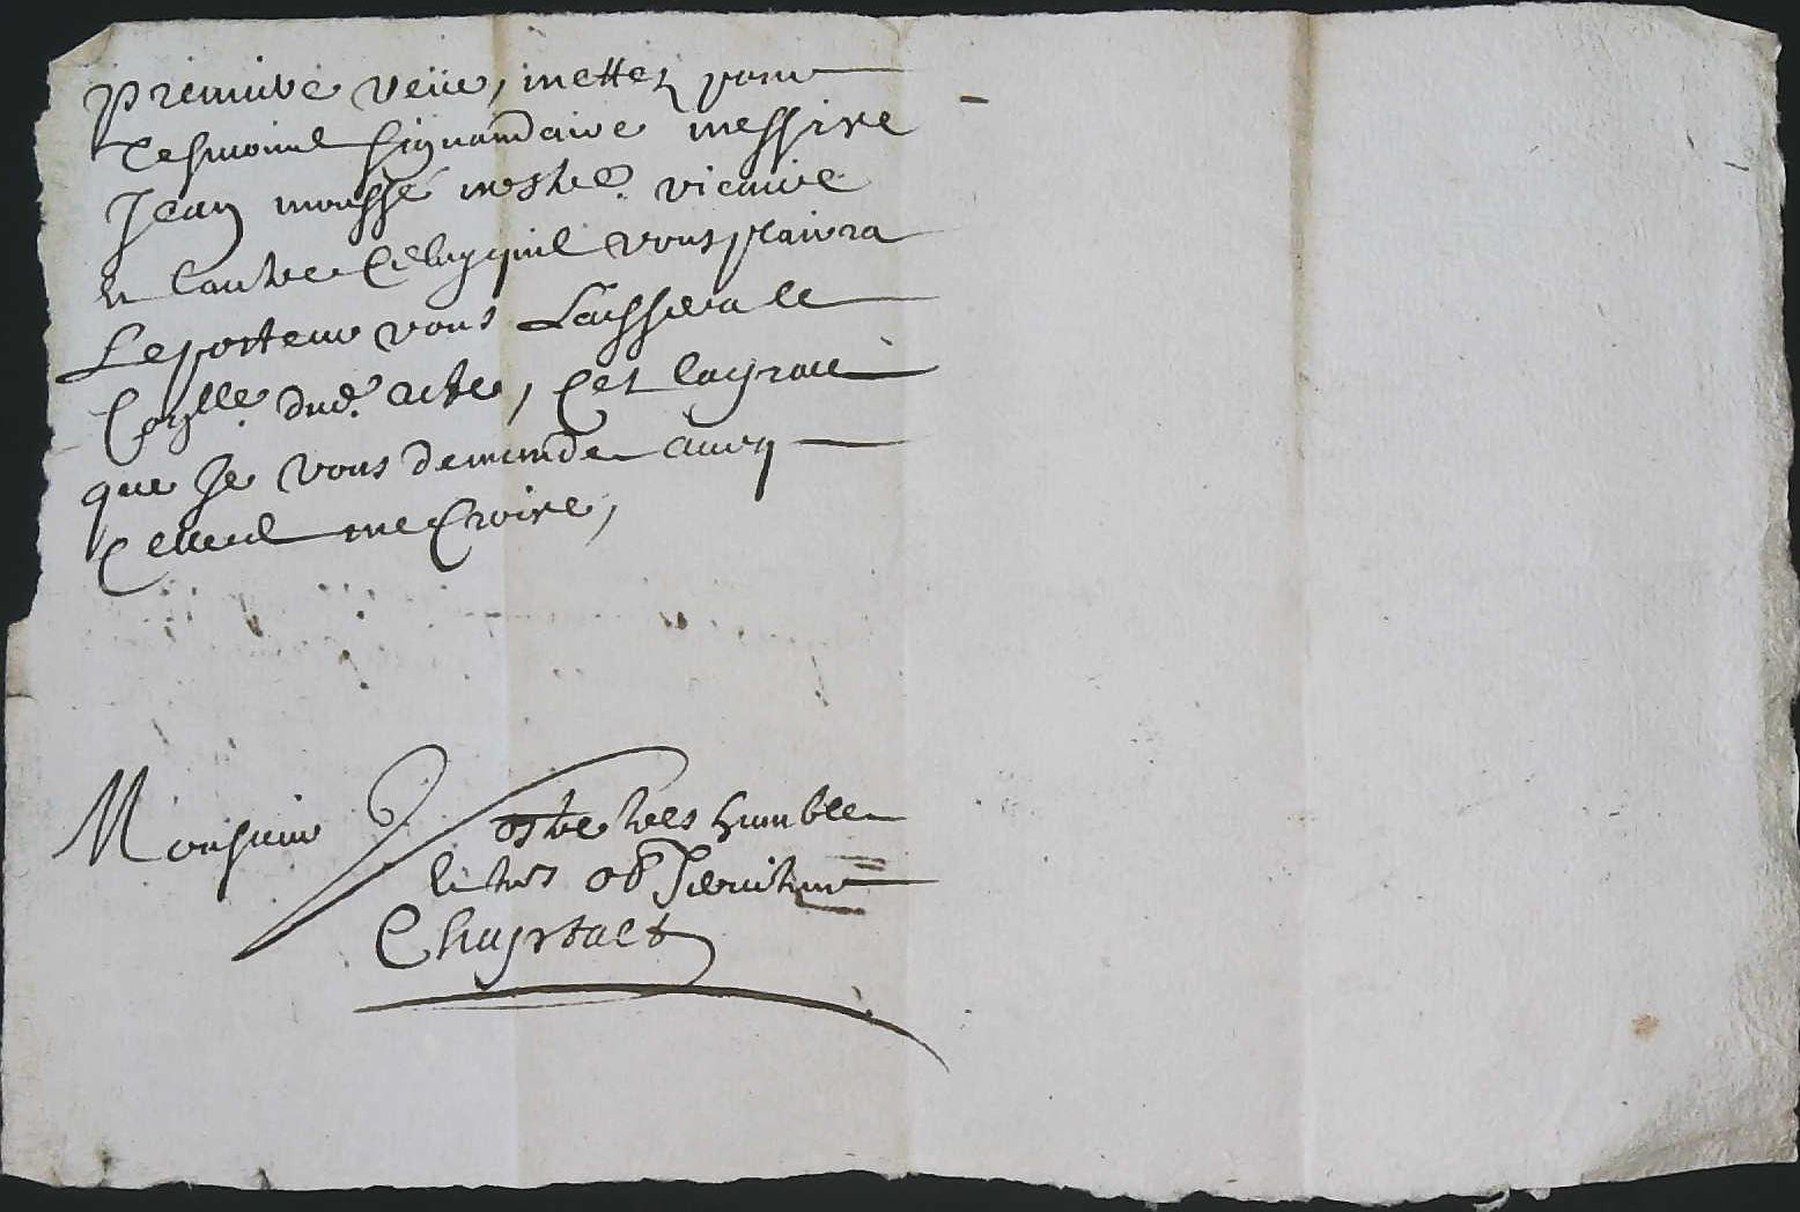 premiere veüe, mettez pour
tesmoint signandaire messire
Jean mousse nostre. vicaire
et lautre Celuy quil vous plairra
Le porteur vous Laissera le
Con.lle dud. acte, Cet la grace
que Je vous demande avec
Celle de me Croire,
Monsieur Vostre tres humble
et tres ob Serviteur